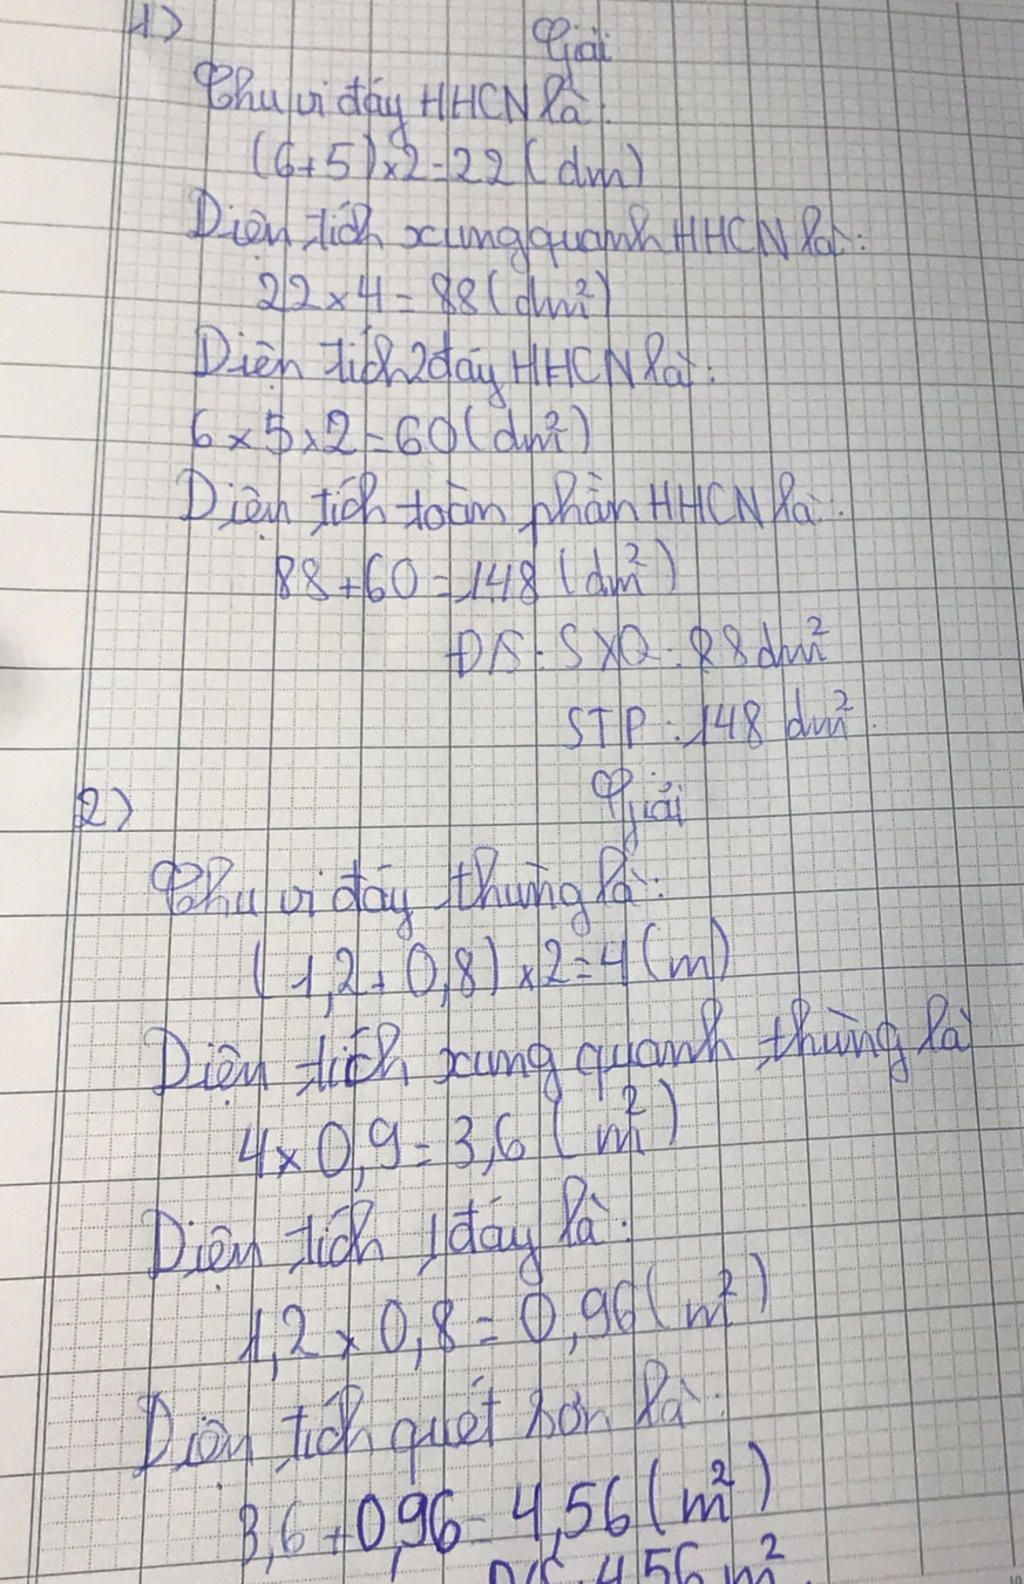 1)
Giải
Chu vi đáy HHCN là:
(6+5)x2=22(dm)
Diện tích xung quanh HHCN là:
22x4=88(dm²)
Diện tích 2 đáy HHCN là:
6x5x2=60(dm²)
Diện tích toàn phần HHCN là:
88+60=148(dm²)
Đ/S: SXQ: 88dm²
STP: 148dm²
2)
Giải
Chu vi đáy thùng là:
(1,2+0,8)x2=4(m)
Diện tích xung quanh thùng là
4x0,9=3,6(m²)
Diện tích 1 đáy là:
1,2x0,8=0,96(m²)
Diện tích quét sơn là:
3,6+0,96=4,56(m²)
Đ/S: 4,56 m²